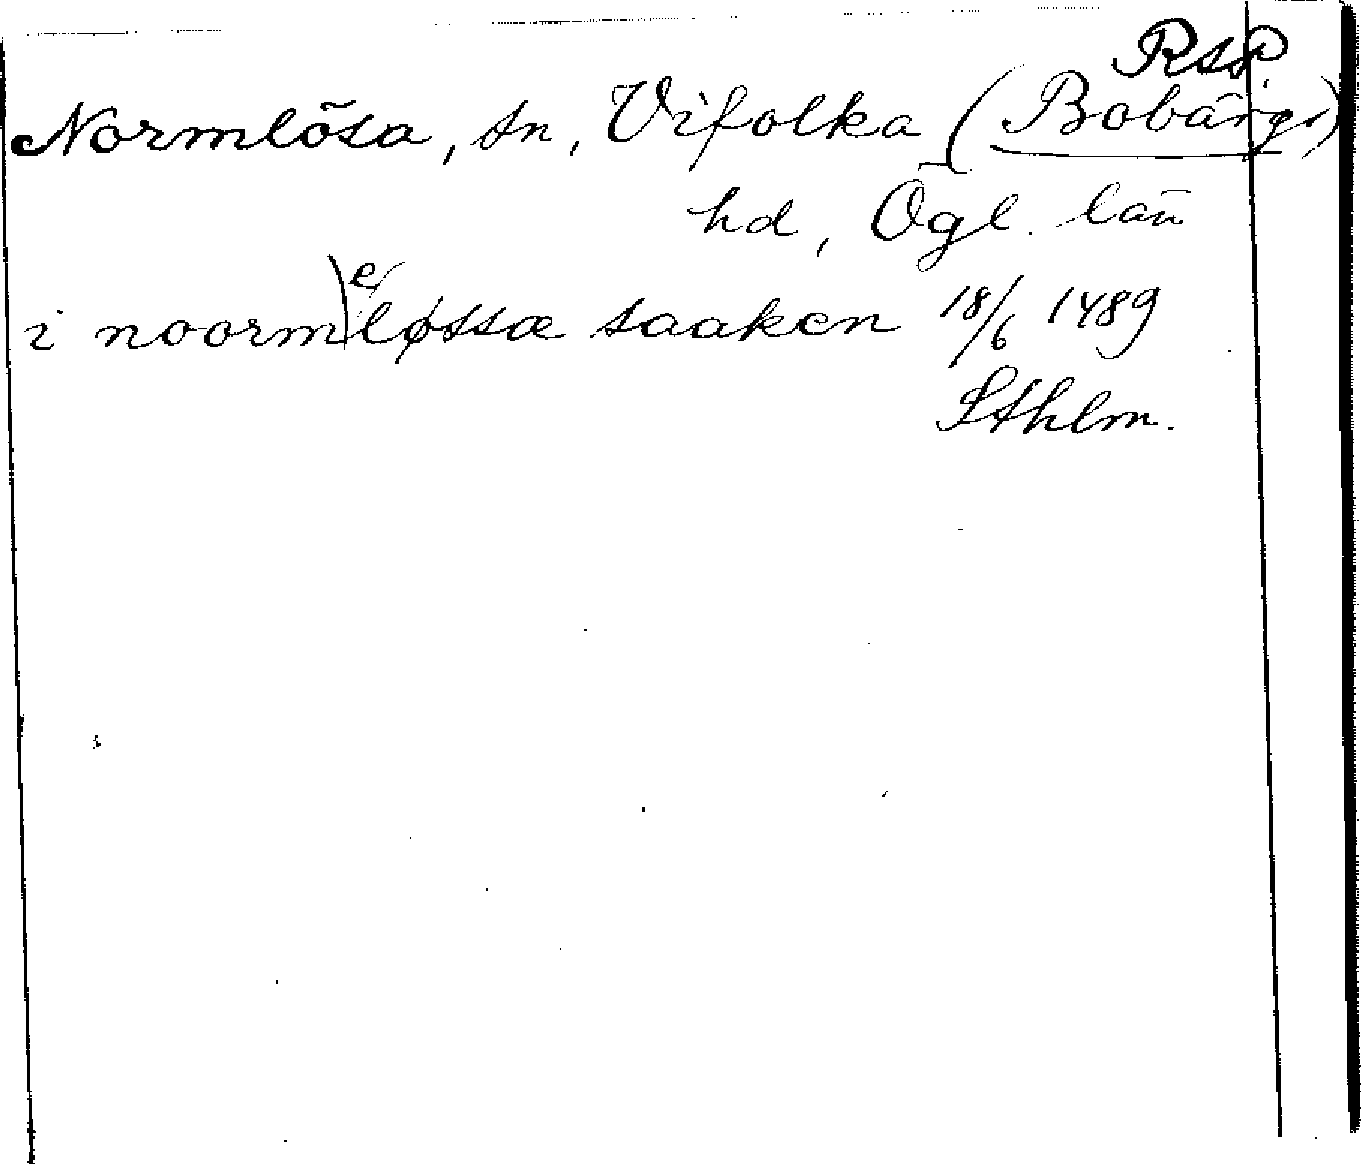 RAP.
Normlösa, sn, Vifolka (Bobärgs)
hd, Ögl. län
i noormeløssæ saaken 18/6 1489
Sthlm.